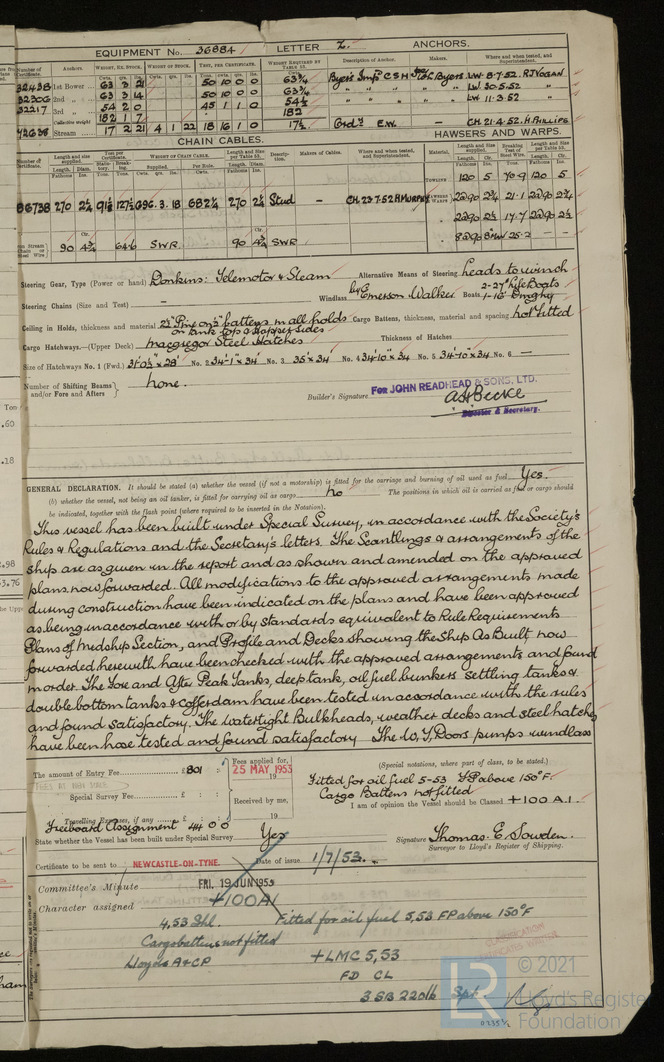 EQUIPMENT No. 36884 LETTER Z. ANCHORS.
Number of Certificate. Anchors. WEIGHT, EX. STOCK. WEIGHT OF STOCK. TEST, PER CERTIFICATE. WEIGHT REQUIRED BY TABLE 53. Description of Anchor. Makers. Where and when tested, and Superintendent.
Cwts. qrs. lbs.
32438 1st Bower 63 3 21 50 10 0 0 63¾ Byers Impd C S H W.L. Byers LW. 8.7.52. R.J. VOGAN
32306 2nd „ 63 3 14 50 10 0 0 63¾ „ „ „ LW. 30.5.52 „
32217 3rd „ 54 2 0 45 1 1 0 54½ „ „ „ LW. 11.3.52 „
Collective weight 182 1 7 182
42638 Stream 17 2 21 4 1 22 18 16 1 0 17½ Ordy E.W. — CH. 21.4.52. H. PHILLIPS
CHAIN CABLES. HAWSERS AND WARPS.
Number of Certificate. Length and size supplied. Test per Certificate. WEIGHT OF CHAIN CABLE. Length and Size per Table 53. Description. Makers of Cables. Where and when tested, and Superintendent. Material. Length and size supplied. Breaking Test of Steel Wire. Length and Size per Table 53.
Fathoms Diam. Supplied. Per Rule. Length. Diam. Fathoms Cir. Tons. Fathoms Ins.
TOWLINE 120 5 70.9 120 5
86738 270 2¼ 91⅛ 127½ 696. 3. 18 682¼ 270 2¼ Stud — CH. 23.7.52 H. MURPHY
HAWSERS & WARPS 2@90 2¾ 21.1 2@90 2¾
„ 2@90 2½ 17.7 2@90 2½
„ 8@90 8 MW 25.2 — —
Stream Chain or Steel Wire 90 4¾ 64.6 SWR 90 4¾ SWR
Steering Gear, Type (Power or hand) Donkins: Telemotor & Steam Alternative Means of Steering leads to winch
Steering Chains (Size and Test) — Windlass by Emerson Walker Boats. 2-27' Life Boats
1-16' Dinghy
Ceiling in Holds, thickness and material 2½" Pine on ½" battens in all holds Cargo Battens, thickness, material and spacing not fitted
on tank top & hopper sides
Cargo Hatchways.—(Upper Deck) Macgregor Steel Hatches Thickness of Hatches —
Size of Hatchways No. 1 (Fwd.) 31'0½" x 28' No. 2 34'-1" x 34' No. 3 35' x 34' No. 4 34'-10" x 34 No. 5 34'-10" x 34 No. 6 —
Number of Shifting Beams and/or Fore and Afters } none.
FOR JOHN READHEAD & SONS, LTD.
Builder's Signature
Director & Secretary.
GENERAL DECLARATION. It should be stated (a) whether the vessel (if not a motorship) is fitted for the carriage and burning of oil used as fuel Yes.
(b) whether the vessel, not being an oil tanker, is fitted for carrying oil as cargo no The positions in which oil is carried as fuel or cargo should
be indicated, together with the flash point (where required to be inserted in the Notation).
This vessel has been built under Special Survey, in accordance with the Society's
Rules & Regulations and the Secretary's letters. The Scantlings & arrangements of the
ship are as given in the report and as shown and amended on the approved
plans now forwarded. All modifications to the approved arrangements made
during construction have been indicated on the plans and have been approved
as being in accordance with or by standards equivalent to Rule Requirements
Plans of Midship Section, and Profile and Decks showing the Ship As Built now
forwarded herewith have been checked with the approved arrangements and found
in order. The Fore and After Peak Tanks, deep tank, oil fuel bunkers settling tanks &
double bottom tanks & cofferdam have been tested in accordance with the rules
and found satisfactory. The Watertight Bulkheads, weather decks and steel hatches
have been hose tested and found satisfactory The W,T, Doors pumps windlass
The amount of Entry Fee £ 801 : : Fees applied for,
25 MAY 1953
Special Survey Fee £ : : Received by me,
19
Travelling Expenses, if any £ : :
Freeboard Assignment 44 0 0
(Special notations, where part of class, to be stated.)
Fitted for oil fuel 5-53 F.P. above 150°F.
Cargo Battens not fitted
I am of opinion the Vessel should be Classed +100 A.1.
State whether the Vessel has been built under Special Survey Yes Signature Thomas E Sowden.
Surveyor to Lloyd's Register of Shipping.
Certificate to be sent to NEWCASTLE-ON-TYNE. Date of issue 1/7/53.
Committee's Minute FRI. 19 JUN 1953
Character assigned +100A1
4,53 Shl. Fitted for oil fuel 5,53 FP above 150°F
Cargo battens not fitted
Lloyds A & CP +LMC 5,53
FD CL
3 SB 220 lb Spt.
© 2021
LR Lloyd's Register
Foundation